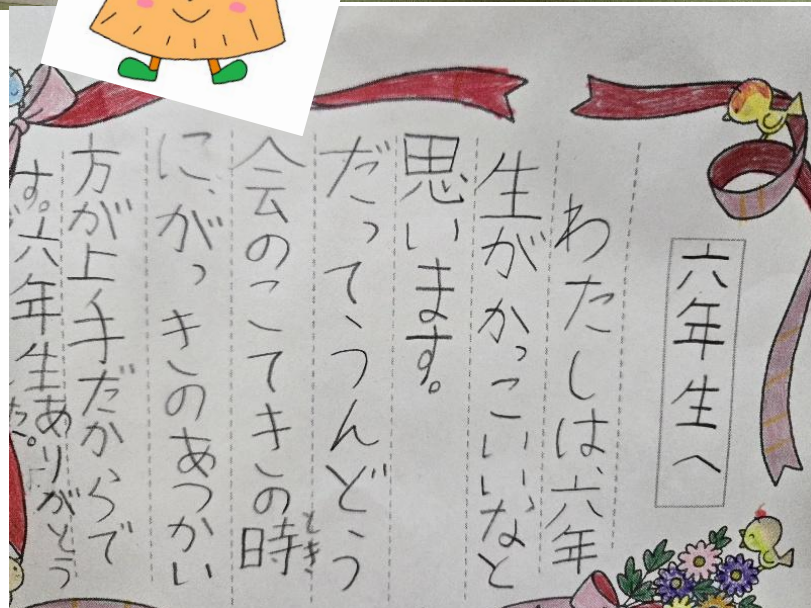 六年生へ
わたしは、六年
生がかっこいいなと
思います。
だってうんどう
会のこてきの時
とき
に、がっきのあつかい
方が上手だからで
す。六年生ありがとう
た。